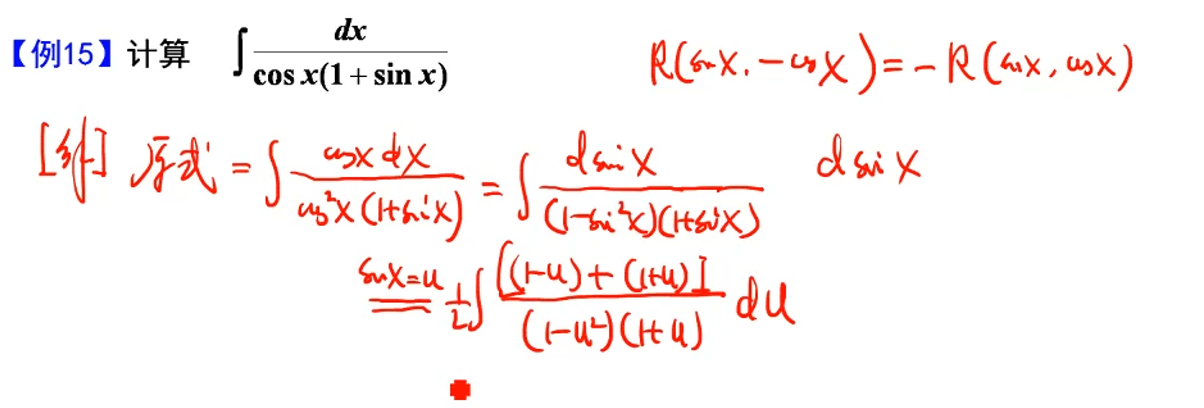 【例15】计算 ∫ dx / (cos x(1 + sin x))
R(sinx, -cosx) = -R(sinx, cosx)
[解] 原式 = ∫ cosx dx / (cos²x(1+sinx)) = ∫ dsinx / ((1-sin²x)(1+sinx)) dsinx
sinx=u == 1/2 ∫ [(1-u)+(1+u)] / ((1-u²)(1+u)) du